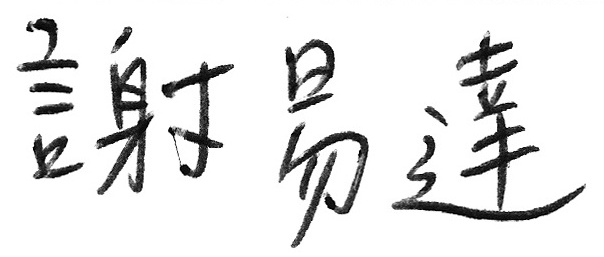 謝易達